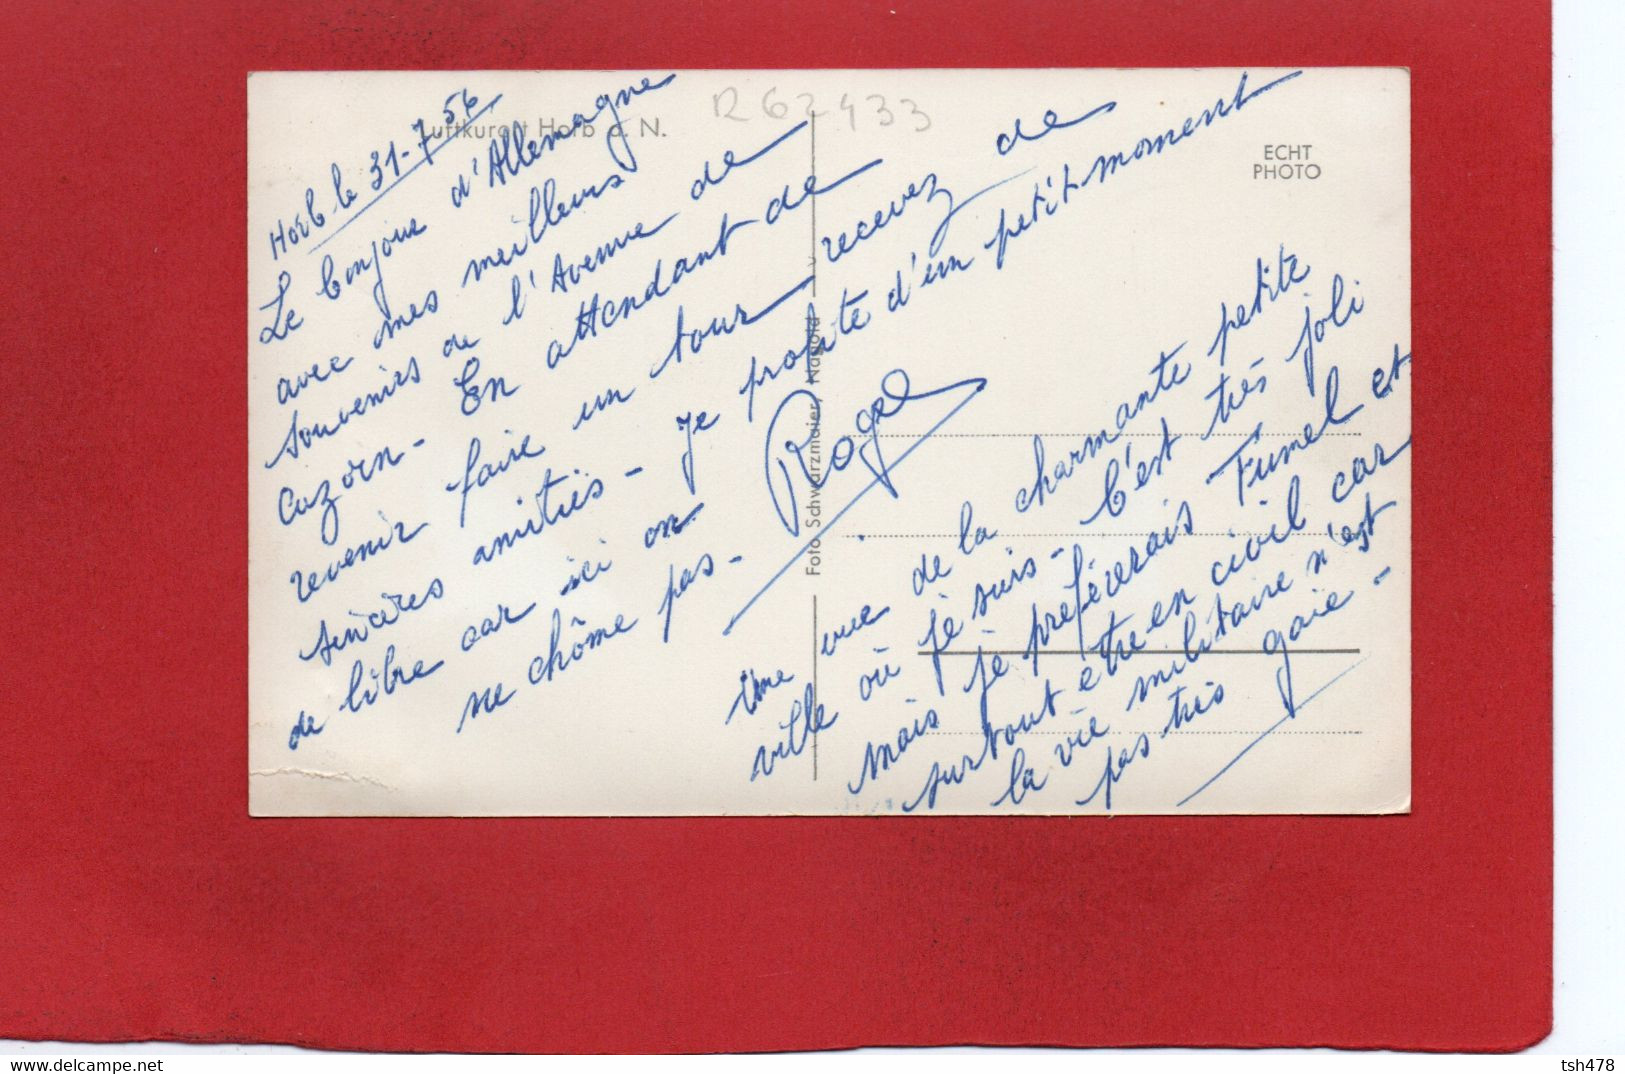 Luftkurort Horb a. N.
R 62433
ECHT
PHOTO
Foto Schwarzmaier, Nagold
Horb le 31-7-56
Le bonjour d'Allemagne
avec mes meilleurs
souvenirs de l'Avenue de
Cuzorn - En attendant de
revenir faire un tour recevez de
sincères amitiés - Je profite d'un petit moment
de libre car ici on
ne chôme pas -
Roger
Une vue de la charmante petite
ville où je suis - C'est très joli
mais je préfèrerais Fumel et
surtout être en civil car
la vie militaire n'est
pas très gaie -
tsh478